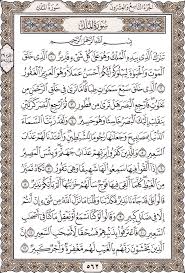 الجزء التاسع والعشرون
سورة الملك
سُورَةُ المُلْكِ
بِسْمِ ٱللَّهِ ٱلرَّحْمَٰنِ ٱلرَّحِيمِ
تَبَٰرَكَ ٱلَّذِي بِيَدِهِ ٱلْمُلْكُ وَهُوَ عَلَىٰ كُلِّ شَيْءٍ قَدِيرٌ ١ ٱلَّذِي خَلَقَ
ٱلْمَوْتَ وَٱلْحَيَوٰةَ لِيَبْلُوَكُمْ أَيُّكُمْ أَحْسَنُ عَمَلًا وَهُوَ ٱلْعَزِيزُ ٱلْغَفُورُ ٢
ٱلَّذِي خَلَقَ سَبْعَ سَمَٰوَٰتٍ طِبَاقًا مَّا تَرَىٰ فِي خَلْقِ ٱلرَّحْمَٰنِ مِن تَفَٰوُتٍ
فَٱرْجِعِ ٱلْبَصَرَ هَلْ تَرَىٰ مِن فُطُورٍ ٣ ثُمَّ ٱرْجِعِ ٱلْبَصَرَ كَرَّتَيْنِ
يَنقَلِبْ إِلَيْكَ ٱلْبَصَرُ خَاسِئًا وَهُوَ حَسِيرٌ ٤ وَلَقَدْ زَيَّنَّا ٱلسَّمَاءَ
ٱلدُّنْيَا بِمَصَٰبِيحَ وَجَعَلْنَٰهَا رُجُومًا لِّلشَّيَٰطِينِ وَأَعْتَدْنَا لَهُمْ عَذَابَ
ٱلسَّعِيرِ ٥ وَلِلَّذِينَ كَفَرُوا۟ بِرَبِّهِمْ عَذَابُ جَهَنَّمَ وَبِئْسَ ٱلْمَصِيرُ ٦
إِذَا أُلْقُوا۟ فِيهَا سَمِعُوا۟ لَهَا شَهِيقًا وَهِيَ تَفُورُ ٧ تَكَادُ تَمَيَّزُ مِنَ
ٱلْغَيْظِ كُلَّمَا أُلْقِيَ فِيهَا فَوْجٌ سَأَلَهُمْ خَزَنَتُهَا أَلَمْ يَأْتِكُمْ نَذِيرٌ ٨
قَالُوا۟ بَلَىٰ قَدْ جَاءَنَا نَذِيرٌ فَكَذَّبْنَا وَقُلْنَا مَا نَزَّلَ ٱللَّهُ مِن شَيْءٍ إِنْ أَنتُمْ
إِلَّا فِي ضَلَٰلٍ كَبِيرٍ ٩ وَقَالُوا۟ لَوْ كُنَّا نَسْمَعُ أَوْ نَعْقِلُ مَا كُنَّا فِي أَصْحَٰبِ
ٱلسَّعِيرِ ١٠ فَٱعْتَرَفُوا۟ بِذَنۢبِهِمْ فَسُحْقًا لِّأَصْحَٰبِ ٱلسَّعِيرِ ١١ إِنَّ
ٱلَّذِينَ يَخْشَوْنَ رَبَّهُم بِٱلْغَيْبِ لَهُم مَّغْفِرَةٌ وَأَجْرٌ كَبِيرٌ ١٢
٥٦٢